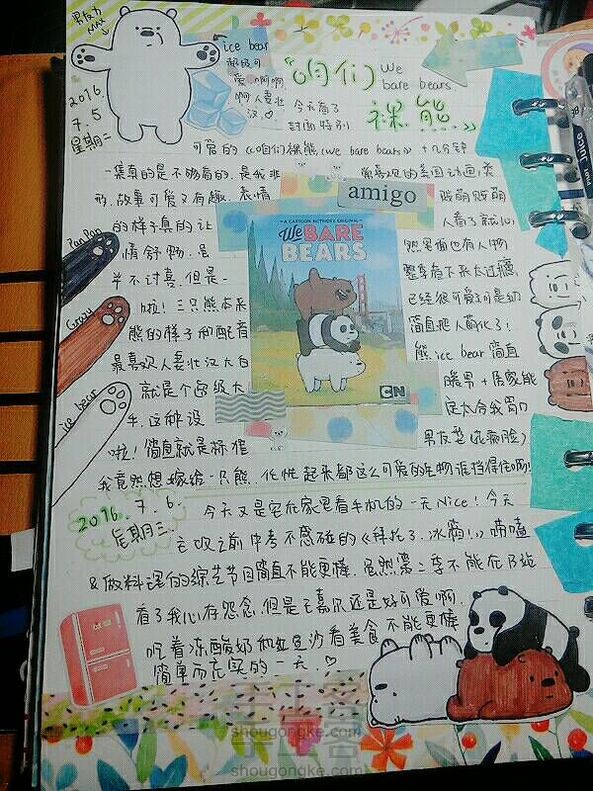 男友力
MAX
2016
7.5
星期二
ice bear
超级可
爱啊啊
啊人妻壮
汉
今天看了
封面特别
《咱们
We
bare bears
裸熊》
可爱的《咱们裸熊(we bare bears)》+几分钟
一集真的是不够看的.是我非
常喜欢的美国动画,类
形.故事可爱又有趣.表情
贱萌贱萌
的样子真的让
人看了就心
情舒畅.虽
然里面也有人物
半不讨喜.但是一
整季看下来太过瘾
啦!三只熊本来
已经很可爱了可是幼
熊的样子和配音
简直把人萌化了!
最喜欢人妻壮汉大白
熊ice bear简直
就是个超级大
暖男+居家能
手.这种设
定太合我胃口
啦!简直就是标准
男友型(花痴脸)
我竟然想嫁给一只熊.化性起来都这么可爱的生物谁挡得住啊!
Pan Pan
Grizzy
ice bear
amigo
A CARTOON NETWORK ORIGINAL
We BARE
BEARS
CN
2016.7.6.
星期三.
今天又是宅在家里看手机的一天Nice!今天
中考不感冒的《拜托了.冰箱!》唠嗑
&做料理的综艺节目简直不能更棒.虽然第二季不能在B站
看了我心存怨念.但是王嘉尔还是好可爱啊.
吃着冻酸奶和红豆沙看美食不能更棒
简单而充实的一天.♡
Juice
手工客
shougongke.com
shougongke.com